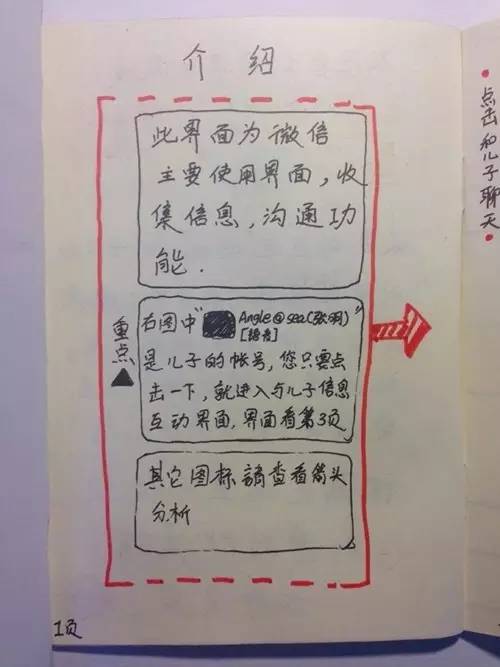 介绍
此界面为微信
主要使用界面，收
集信息，沟通功
能.
重点
右图中“ Angle@sea(张明)”
[语音]
是儿子的帐号,您只要点
击一下，就进入与儿子信息
互动界面,界面看第3页
其它图标请查看箭头
分析
1页
点击和儿子聊天